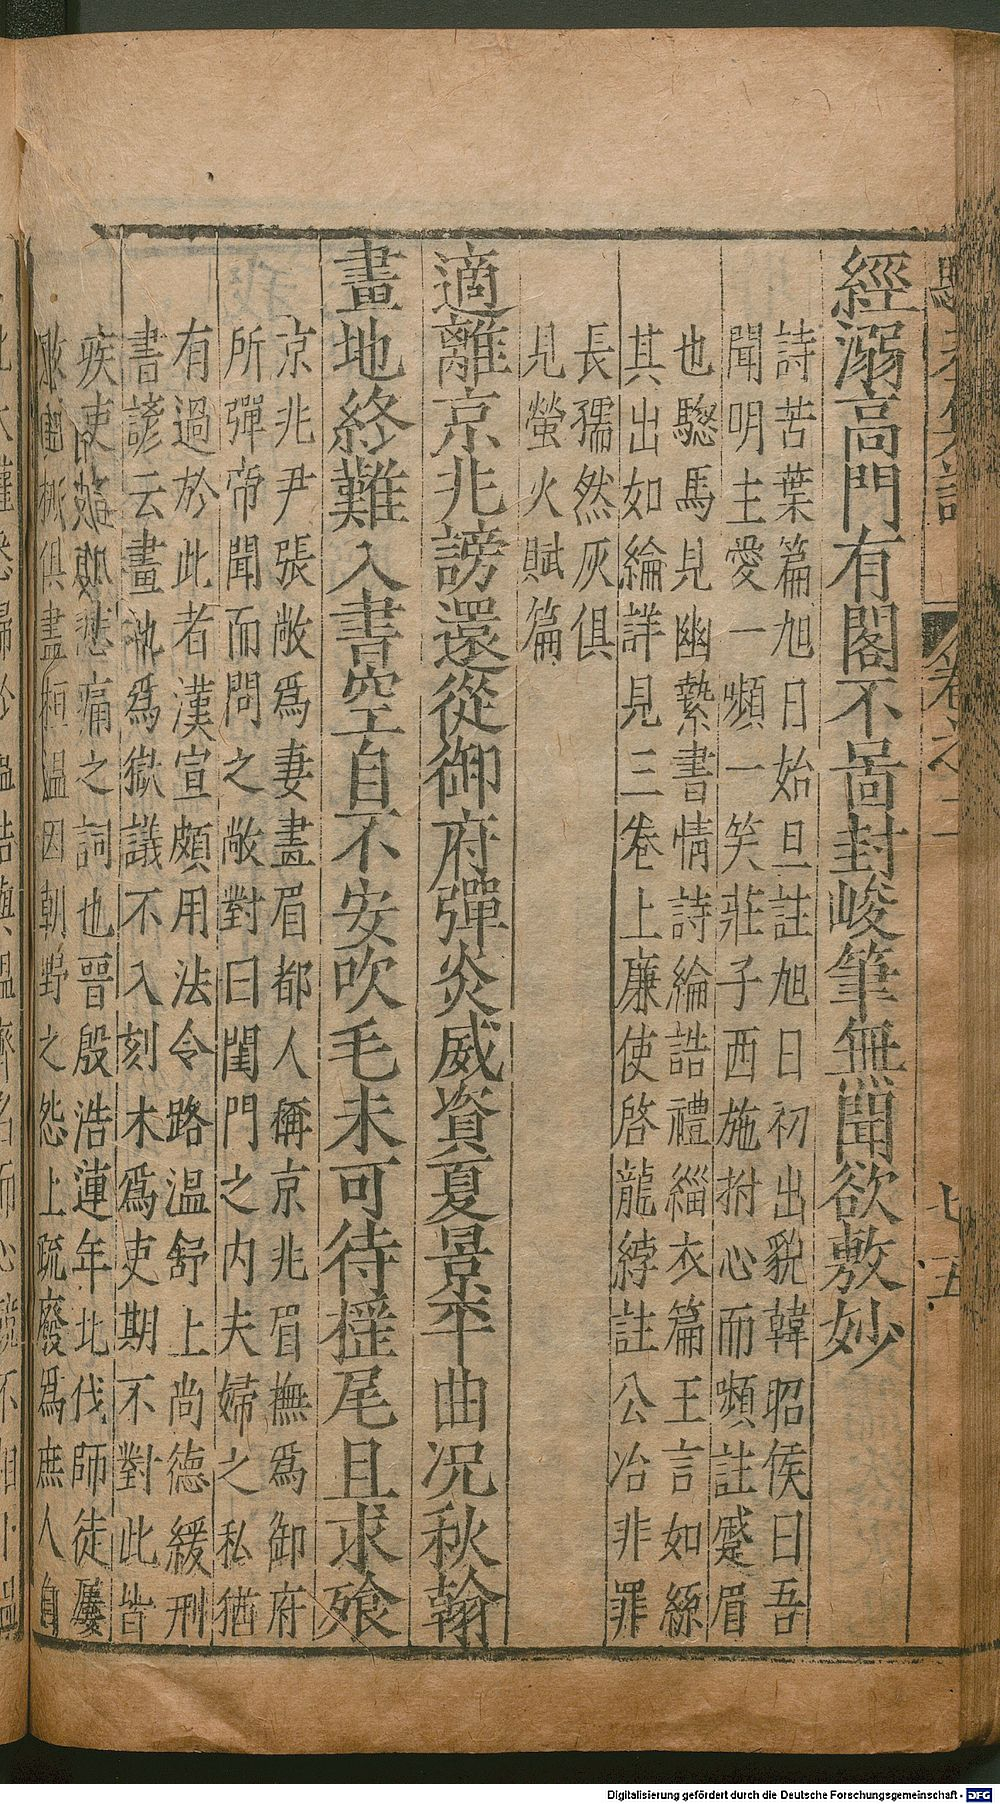 卷之二
七五
經溺高門有閣不啚封峻筆無聞欲敷妙
詩苦葉篇旭日始旦註旭日初出貌韓昭侯曰吾
聞明主愛一嚬一笑莊子西施拊心而嚬註蹙眉
也驄馬見幽縶書情詩綸誥禮緇衣篇王言如絲
其出如綸詳見三卷上廉使啓龍綍註公冶非罪
長孺然灰俱
見螢火賦篇
適離京兆謗還從御府彈炎威資夏景平曲况秋翰
畫地終難入書空自不安吹毛未可待搖尾且求飱
京兆尹張敞爲妻畫眉都人稱京兆眉撫爲御府
所彈帝聞而問之敞對曰閨門之内夫婦之私猶
有過於此者漢宣頗用法令路温舒上尚德緩刑
書諺云畫地爲獄議不入刻木爲吏期不對此皆
疾吏悲痛之詞也晉殷浩連年北伐師徒屢
敗糧械俱盡桓温因朝野之怨上疏廢爲庶人自